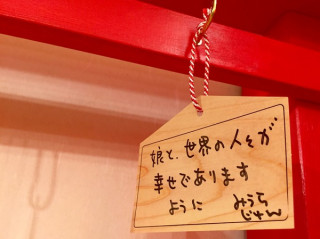 娘と、世界の人々が
幸せであります
ように
みうら
じゅん